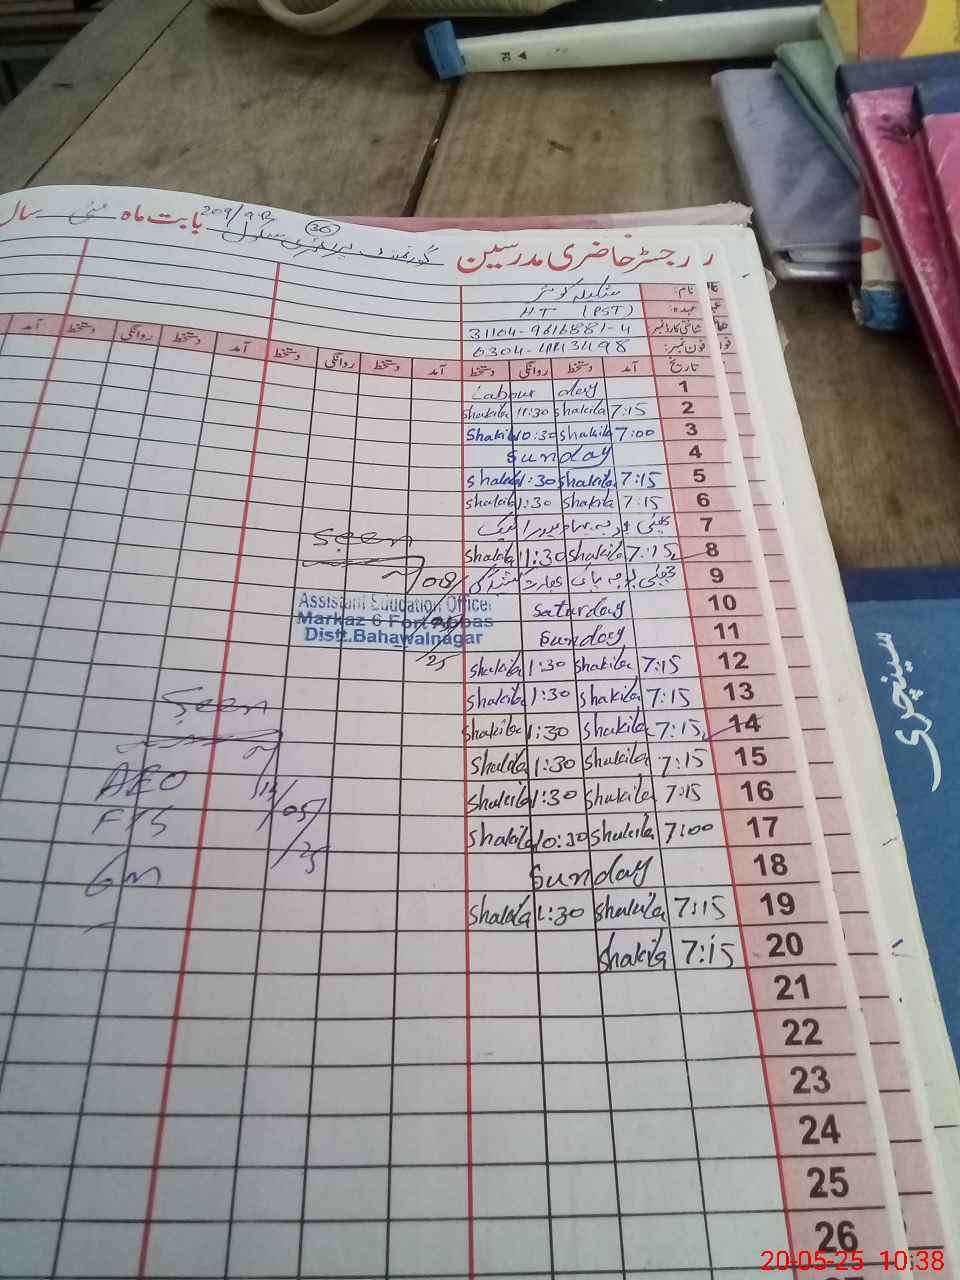 FC
بابت ماہ مئی سال
209/9R
30
گورنمنٹ پرائمری سکول
رجسٹر حاضری مدرسین
نام: شکیلہ کوثر
عہدہ: HT (PST)
شناختی کارڈ نمبر: 31104-9616881-4
فون نمبر:
تاریخ آمد دستخط روانگی دستخط آمد دستخط روانگی دستخط آمد دستخط روانگی دستخط آمد
1 Labour day
2 7:15 Shakila 11:30 Shakila
3 7:00 Shakila 10:30 Shakila
4 Sunday
5 7:15 Shakila 1:30 Shakila
6 7:15 Shakila 1:30 Shakila
7 چھٹی
8 7:15 Shakila 11:30 Shakila
9 چھٹی
10 Saturday
11 Sunday
12 7:15 Shakila 1:30 Shakila
13 7:15 Shakila 1:30 Shakila
14 7:15 Shakila 1:30 Shakila
15 7:15 Shakila 1:30 Shakila
16 7:15 Shakila 1:30 Shakila
17 7:00 Shakila 10:30 Shakila
18 Sunday
19 7:15 Shakila 1:30 Shakila
20 7:15 Shakila
21
22
23
24
25
26
Seen
08/05/25
Assistant Education Officer
Markaz 6 Fort Abbas
Distt.Bahawalnagar
Seen
AEO
FTS
14/05/25
سینچری
20-05-25 10:38